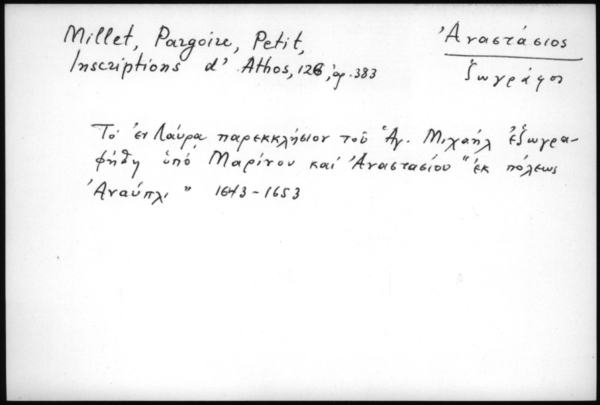 Millet, Pargoire, Petit,
Inscriptions d' Athos, 126, ἀρ. 383
Ἀναστάσιος
ζωγράφος
Τό ἐν Λαύρᾳ παρεκκλήσιον τοῦ Ἁγ. Μιχαήλ ἐζωγρα-
φήθη ὑπό Μαρίνου καί Ἀναστασίου "ἐκ πόλεως
Ἀναύπλι" 1643-1653